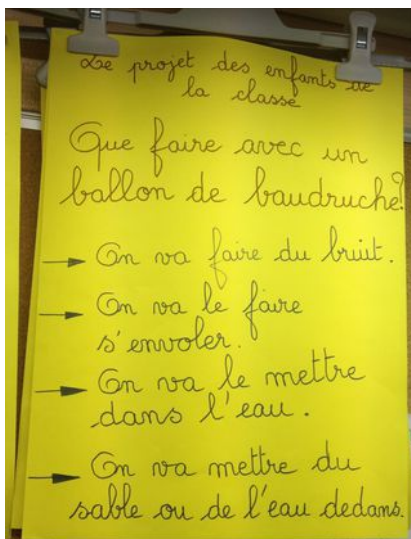 Le projet des enfants de
la classe
Que faire avec un
ballon de baudruche?
→ On va faire du bruit.
→ On va le faire
s'envoler.
→ On va le mettre
dans l'eau.
→ On va mettre du
sable ou de l'eau dedans.